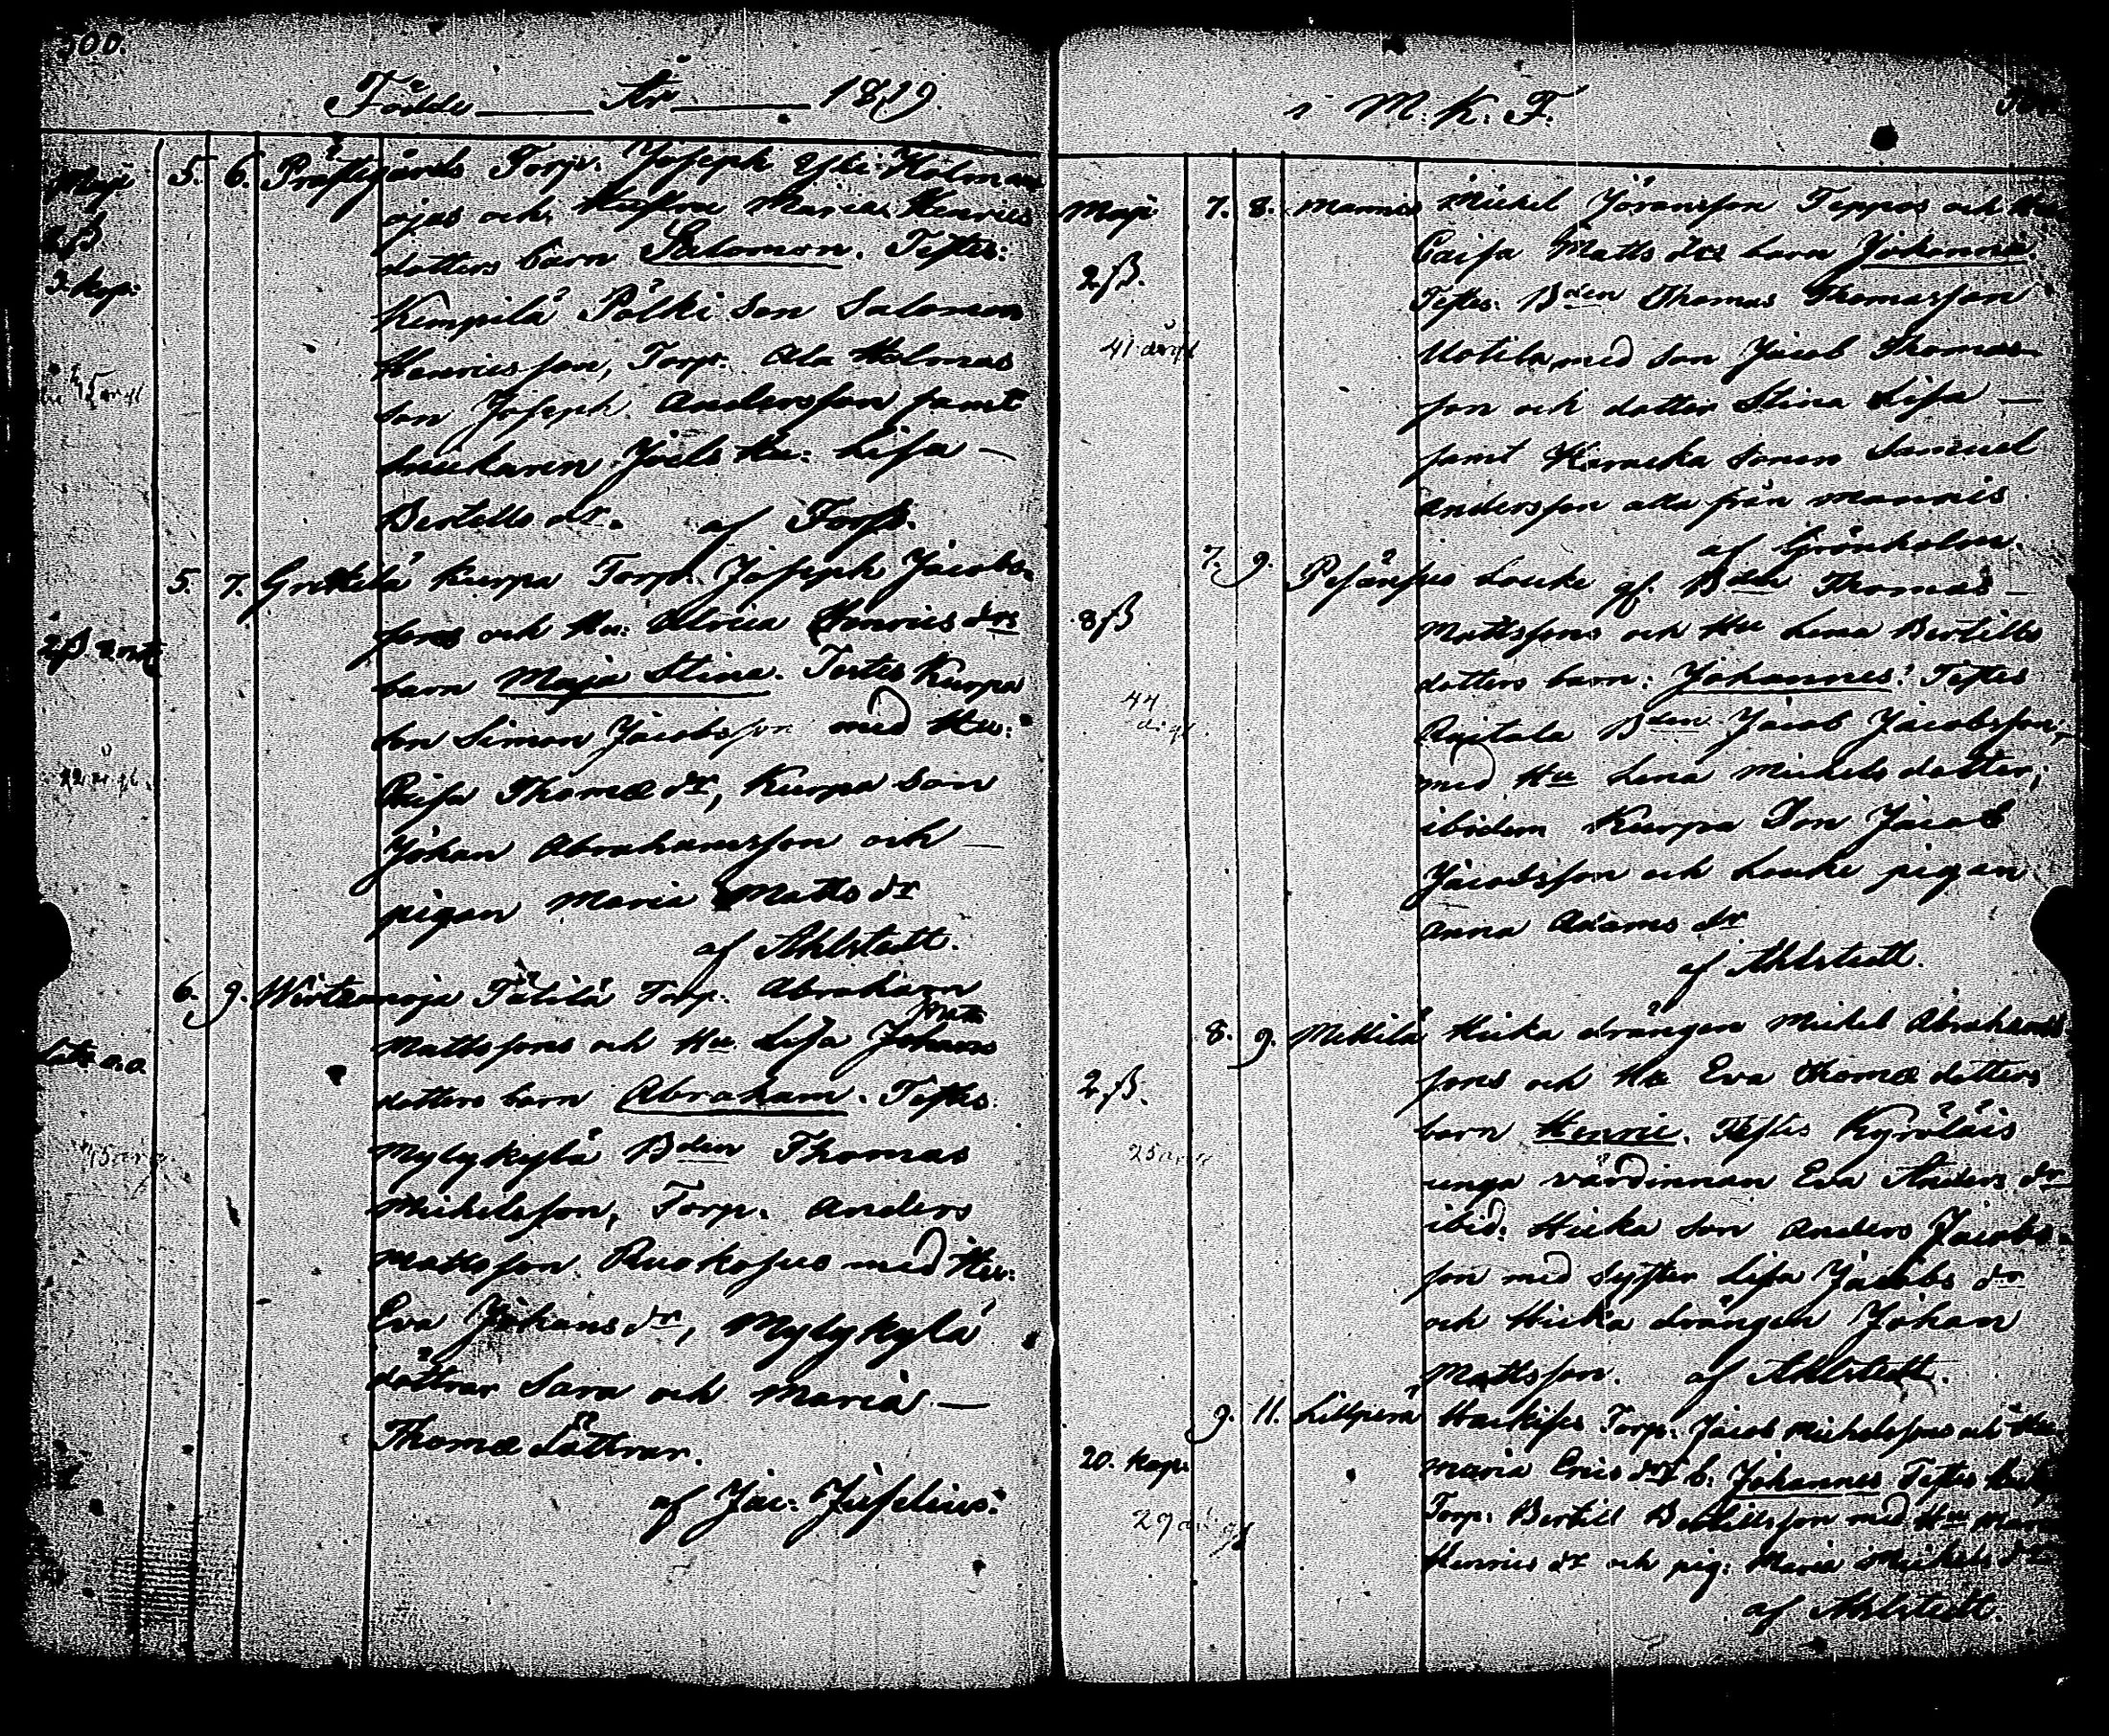 300.
Födde År 1829.
Maji 5. 6. Prästgårds Torp. Joseph Ylli-Holman
ojas och Maria Henrics
dotters barn Salomon. Testes:
3 kop: Kempilä Pölki son Salomon
Henricsson, Torp. Ala Holmas
son Joseph Andersson samt
Joels Hu: Lisa —
Bertills dr. af Forss.
5. 7. Grekelä Kurpa Torp. Joseph Jacobs-
sons och Hu: Henrics drs
barn Maja Stina. Testes Kurpa
son Simon Jacobsson med Hu:
Caisa Thomæ dr, Kurpa son
Johan Abrahamsson och —
pigan Maria Matts dr
af Ahlstedt.
6. 9. Torp. Abraham
Matts
Mattssons och Hu Lisa Johans
dotters barn Abraham. Testes
Mylykylä Bden Thomas
Michelsson, Torp. Anders
Mattsson Ruokojus med Hu:
Eva Johans dr, Mylykylä
döttrar Sara och Maria —
Thomæ döttrar.
af Jac: Juselius.
i M. K. F.
Maji 7. 8. Mannis Michel Jöransson Teppos och Hu
Caisa Matts drs barn Johanna.
2 ß. Testes: Bden Thomas Thomasson
Uotila, med son Jacob Thomas-
son och dotter Stina Lisa —
samt sonen Samuel
Andersson alla från Mannis
af Grönholm.
7. 9. Pesänsuo Louke gf. Bden Thomas —
8 ß Mattssons och Hu Lena Bertills
dotters barn: Johannes. Testes
44 Raitala Bden Jacob Jacobsson,
med Hu Lena Michels dotter,
ibidem Kurpa Son Jacob
Jacobsson och Louke pigan
Anna Adams dr
af Ahlstedt.
8. 9. Mettilä Huka drängen Michel Abrahams
sons och Hu Eva Thomæ dotters
2 ß. barn Henric. Testes Kyröläis
unga värdinnan Eva Anders dr
ibid: Huka son Anders Jacobs-
son med syster Lisa Jacobs dr
och Huka drängen Johan
Mattsson. af Ahlstedt.
9. 11. Lillperä Torp: Jacob Michelssons och Hu
20. kop. Maria Erics drs b: Johannes Testes
Torp: Bertill Bertillsson med Hu
Henrics dr och pig: Maria Michels dr
af Ahlstedt